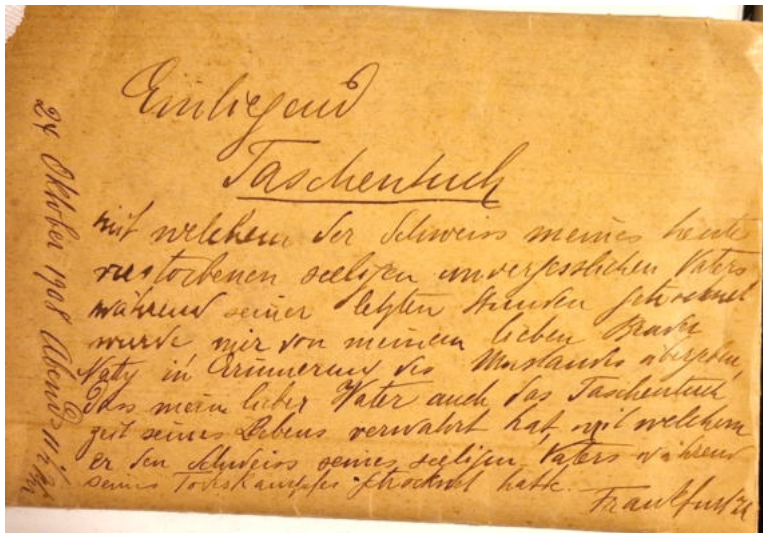 Einliegend
Taschentuch
mit welchem der Schweiss meines heute
verstorbenen seeligen unvergesslichen Vaters
während seiner letzten Stunden getrocknet
wurde mir von meinem lieben Bruder
Naty in Erinnerung des Umstandes übergeben,
dass mein lieber Vater auch das Taschentuch
zeit seines Lebens verwahrt hat, mit welchem
er den Schweiss seines seeligen Vaters während
seines Todeskampfes getrocknet hatte.
Frankfurt
Oktober 1908 Abends 11 Uhr